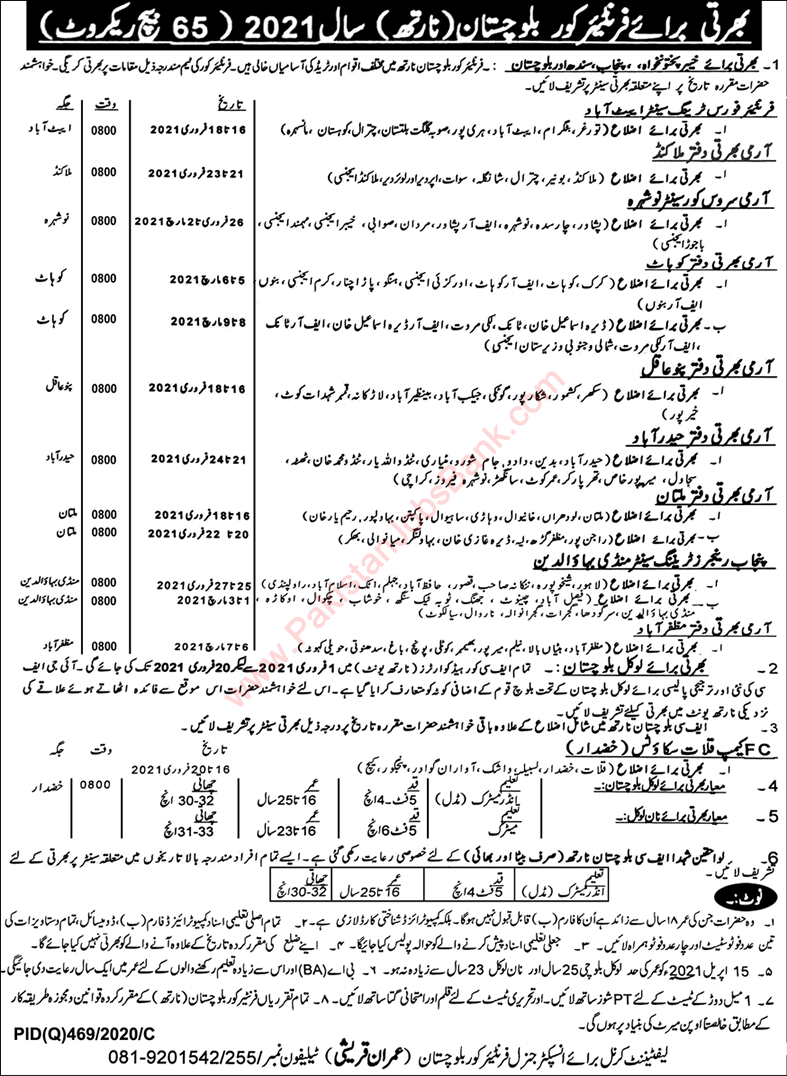 بھرتی برائے فرنٹیئر کور بلوچستان (نارتھ) سال 2021 ( 65 بیچ ریکروٹ)
1- بھرتی برائے خیبر پختونخواہ، پنجاب، سندھ اور بلوچستان :- فرنٹیئر کور بلوچستان نارتھ میں مختلف اقوام اور ٹریڈ کی آسامیاں خالی ہیں۔ فرنٹیئر کور کی ٹیم مندرجہ ذیل مقامات پر بھرتی کریگی۔ خواہشمند
حضرات مقررہ تاریخ پر اپنے متعلقہ بھرتی سینٹر پر تشریف لائیں۔
تاریخ وقت جگہ
فرنٹیئر فورس ٹریننگ سینٹر ایبٹ آباد
ا۔ بھرتی برائے اضلاع (تورغر، بٹگرام، ایبٹ آباد، ہری پور، صوبہ گلگت بلتستان، چترال، کوہستان، مانسہرہ) 16 تا 18 فروری 2021 0800 ایبٹ آباد
آرمی بھرتی دفتر ملاکنڈ
ا۔ بھرتی برائے اضلاع (ملاکنڈ، بونیر، چترال، شانگلہ، سوات، اپر دیر اور لوئر دیر، ملاکنڈ ایجنسی) 21 تا 23 فروری 2021 0800 ملاکنڈ
آرمی سروس کور سینٹر نوشہرہ
ا۔ بھرتی برائے اضلاع (پشاور، چارسدہ، نوشہرہ، ایف آر پشاور، مردان، صوابی، خیبر ایجنسی، مہمند ایجنسی، 26 فروری تا 2 مارچ 2021 0800 نوشہرہ
باجوڑ ایجنسی)
آرمی بھرتی دفتر کوہاٹ
ا۔ بھرتی برائے اضلاع (کرک، کوہاٹ، ایف آر کوہاٹ، اورکزئی ایجنسی، ہنگو، پاڑا چنار، کرم ایجنسی، بنوں 5 تا 6 مارچ 2021 0800 کوہاٹ
ایف آر بنوں)
ب۔ بھرتی برائے اضلاع (ڈیرہ اسماعیل خان، ٹانک، لکی مروت، ایف آر ڈیرہ اسماعیل خان، ایف آر ٹانک 8 تا 9 مارچ 2021 0800 کوہاٹ
، ایف آر لکی مروت، شمالی و جنوبی وزیرستان ایجنسی)
آرمی بھرتی دفتر پنوعاقل
ا۔ بھرتی برائے اضلاع (سکھر، کشمور، شکارپور، گھوٹکی، جیکب آباد، بینظیر آباد، لاڑکانہ، قمبر شہدادکوٹ، 16 تا 18 فروری 2021 0800 پنوعاقل
خیرپور)
آرمی بھرتی دفتر حیدرآباد
ا۔ بھرتی برائے اضلاع (حیدرآباد، بدین، دادو، جام شورو، مٹیاری، ٹنڈو اللہ یار، ٹنڈو محمد خان، ٹھٹھہ، 21 تا 24 فروری 2021 0800 حیدرآباد
سجاول، میرپور خاص، تھرپارکر، عمرکوٹ، سانگھڑ، نوشہرہ فیروز، کراچی)
آرمی بھرتی دفتر ملتان
ا۔ بھرتی برائے اضلاع (ملتان، لودھراں، خانیوال، وہاڑی، ساہیوال، پاکپتن، بہاولپور، رحیم یار خان) 16 تا 18 فروری 2021 0800 ملتان
ب۔ بھرتی برائے اضلاع (راجن پور، مظفر گڑھ، لیہ، ڈیرہ غازی خان، بہاولنگر، میانوالی، بھکر) 20 تا 22 فروری 2021 0800 ملتان
پنجاب رینجرز ٹریننگ سینٹر منڈی بہاؤالدین
ا۔ بھرتی برائے اضلاع (لاہور، شیخوپورہ، ننکانہ صاحب، قصور، حافظ آباد، جہلم، اٹک، اسلام آباد، راولپنڈی) 25 تا 27 فروری 2021 0800 منڈی بہاؤالدین
ب۔ بھرتی برائے اضلاع (فیصل آباد، چنیوٹ، جھنگ، ٹوبہ ٹیک سنگھ، خوشاب، چکوال، اوکاڑہ، 1 تا 3 مارچ 2021 0800 منڈی بہاؤالدین
منڈی بہاؤالدین، سرگودھا، گجرات، گجرانوالہ، نارووال، سیالکوٹ)
آرمی بھرتی دفتر مظفر آباد
ا۔ بھرتی برائے اضلاع (مظفر آباد، ہٹیاں بالا، نیلم، میرپور، بھمبر، کوٹلی، پونچھ، باغ، سدھنوتی، حویلی کہوٹہ) 6 تا 7 مارچ 2021 0800 مظفر آباد
2- بھرتی برائے لوکل بلوچستان :- تمام ایف سی کور ہیڈ کوارٹرز (نارتھ یونٹ) میں 1 فروری 2021 سے لیکر 20 فروری 2021 تک کی جائے گی۔ آئی جی ایف
سی کی نئی اور ترجیحی پالیسی برائے لوکل بلوچستان کے تحت بلوچ قوم کے اضافی کوٹہ کو متعارف کرایا گیا ہے۔ اس لئے خواہشمند حضرات اس موقع سے فائدہ اٹھاتے ہوئے علاقے کی
نزدیکی نارتھ یونٹ میں بھرتی کیلئے تشریف لائیں۔
3- ایف سی بلوچستان نارتھ میں شامل اضلاع کے علاوہ باقی خواہشمند حضرات مقررہ تاریخ پر درجہ ذیل بھرتی سینٹر پر تشریف لائیں۔
FC کیمپ قلات سکاؤٹس (خضدار) تاریخ وقت جگہ
ا۔ بھرتی برائے اضلاع (قلات، خضدار، لسبیلہ، واشک، آواران، گوادر، پنجگور، کیچ) 16 تا 20 فروری 2021 0800 خضدار
4- معیار بھرتی برائے لوکل بلوچستان:- تعلیم انڈر میٹرک (مڈل) قد 5 فٹ-4 انچ عمر 16 تا 25 سال چھاتی 30-32 انچ
5- معیار بھرتی برائے نان لوکل:- تعلیم میٹرک قد 5 فٹ 6 انچ عمر 16 تا 23 سال چھاتی 31-33 انچ
6- لواحقین شہدا ایف سی بلوچستان نارتھ (صرف بیٹا اور بھائی) کے لئے خصوصی رعایت رکھی گئی ہے۔ ایسے تمام افراد مندرجہ بالا تاریخوں میں متعلقہ سینٹر پر بھرتی کے لئے
تشریف لائیں۔
تعلیم انڈر میٹرک (مڈل) قد 5 فٹ 4 انچ عمر 16 تا 25 سال چھاتی 30-32 انچ
نوٹ:-
۱۔ وہ حضرات جن کی عمر ۱۸ سال سے زائد ہے اُن کا فارم (ب) قابل قبول نہیں ہوگا۔ بلکہ کمپیوٹرائزڈ شناختی کارڈ لازمی ہے۔ ۲۔ تمام اصلی تعلیمی اسناد کمپیوٹرائیزڈ فارم (ب)، ڈومیسائل، تمام دستاویزات کی
تین عدد فوٹو سٹیٹ اور چار عدد فوٹو ہمراہ لائیں۔ ۳۔ جعلی تعلیمی اسناد پیش کرنے والے کو حوالہ پولیس کیا جائیگا۔ ۴۔ اپنے ضلع کی مقرر کردہ تاریخ کے علاوہ آنے والے کو بھرتی نہیں کیا جائے گا۔
۵۔ 15 اپریل 2021 کو عمر کی حد لوکل بلوچی 25 سال اور نان لوکل 23 سال سے زیادہ نہ ہو۔ ۶۔ بی اے (BA) اور اس سے زیادہ تعلیم رکھنے والوں کے لئے عمر میں ایک سال رعایت دی جائیگی۔
۷۔ 1 میل دوڑ کے ٹیسٹ کے لئے PT شوز ساتھ لائیں۔ اور تحریری ٹیسٹ کے لئے قلم اور امتحانی گتا ساتھ لائیں۔ ۸۔ تمام تقرریاں فرنٹیئر کور بلوچستان (نارتھ) کے مقرر کردہ قوانین و مجوزہ طریقہ کار
کے مطابق خالصتاً اوپن میرٹ کی بنیاد پر ہوں گی۔
PID(Q)469/2020/C
لیفٹیننٹ کرنل برائے انسپکٹر جنرل فرنٹیئر کور بلوچستان (عمران قریشی) ٹیلیفون نمبر/255/ 081-9201542
www.PakistanJobsBank.com